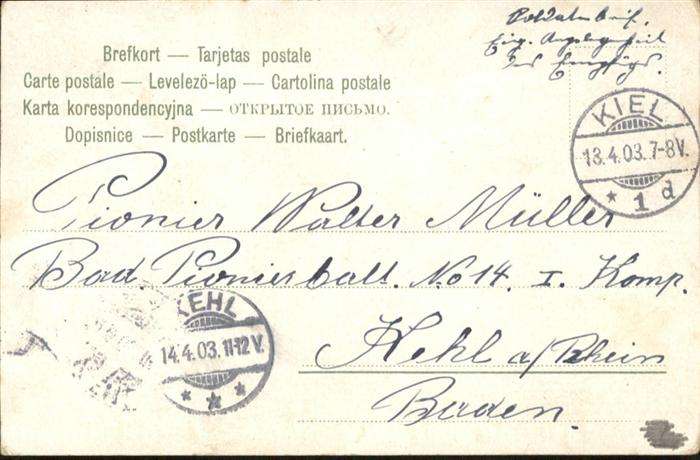 Soldatenbrief.
Eig. Angelegenheit
des Empfgs.
Brefkort — Tarjetas postale
Carte postale — Levelező-lap — Cartolina postale
Karta korespondencyjna — ОТКРЫТОЕ ПИСЬМО.
Dopisnice — Postkarte — Briefkaart.
KIEL
13.4.03.7-8V.
* 1 d
Pionier Walter Müller
Bad Pionierbatl. No 14. I. Komp.
KEHL
14.4.03.11-12V.
Kehl a/Rhein
Baden.